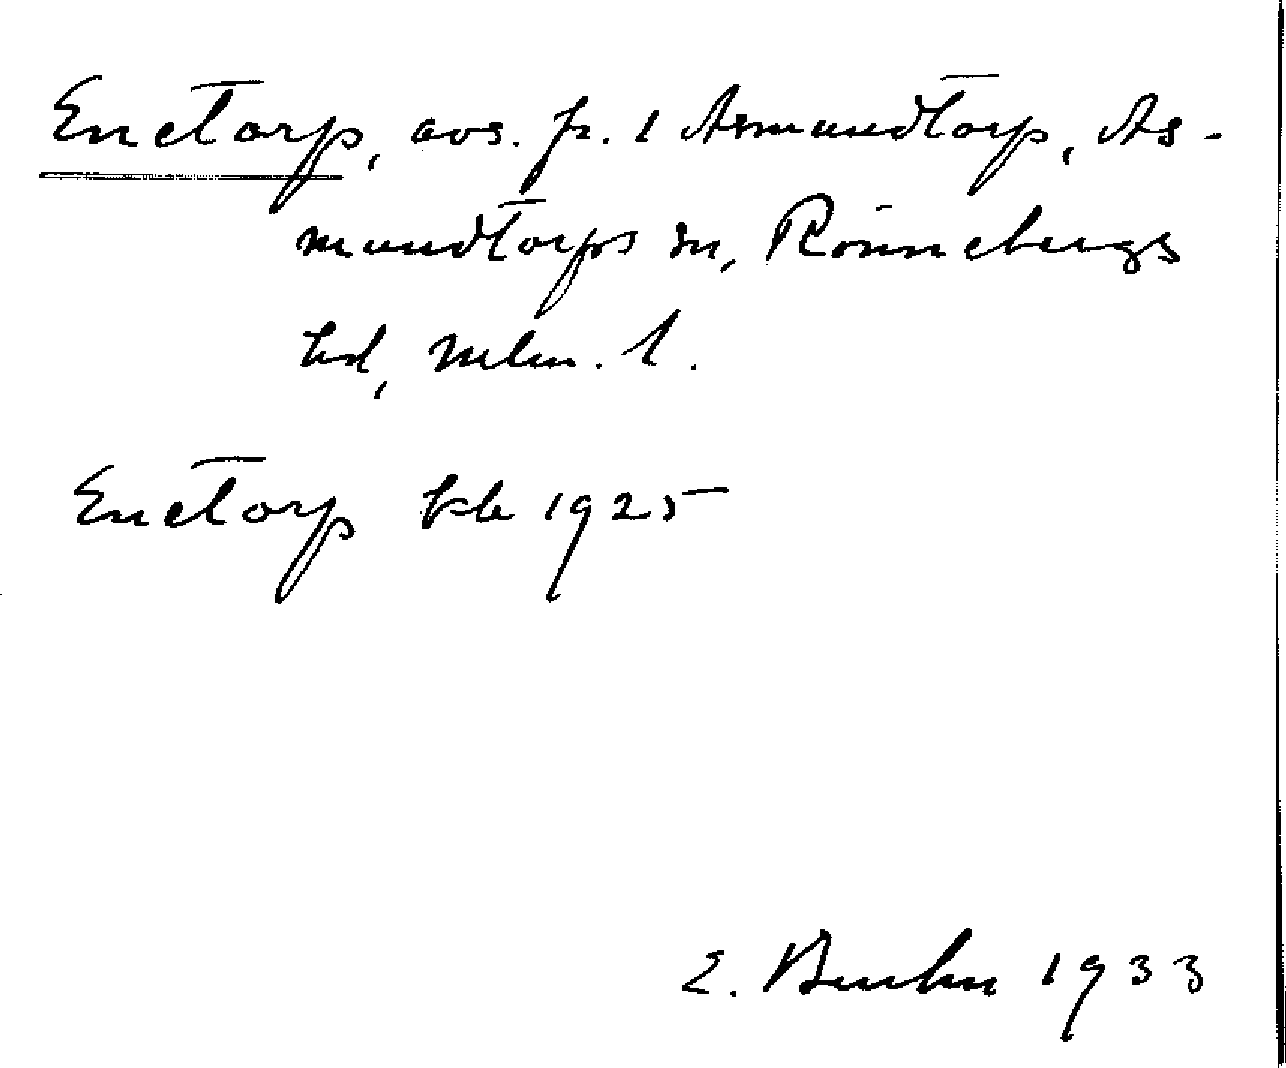 Enetorp, avs. fr. 1 Asmundtorp, As-
mundtorps sn, Rönnebergs
hd, Mlm. l.
Enetorp kb 1925
E. 1933